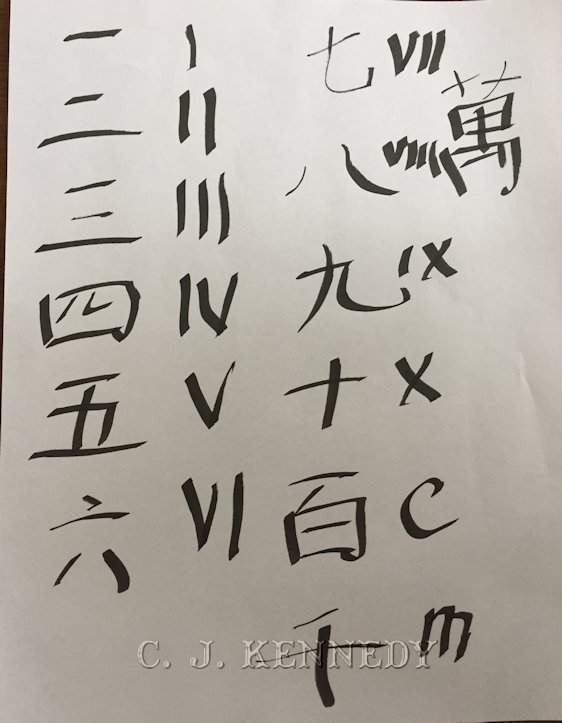 一 I
二 II
三 III
四 IV
五 V
六 VI
七 VII
八 VIII
九 IX
十 X
百 C
千 m
萬
C. J. KENNEDY